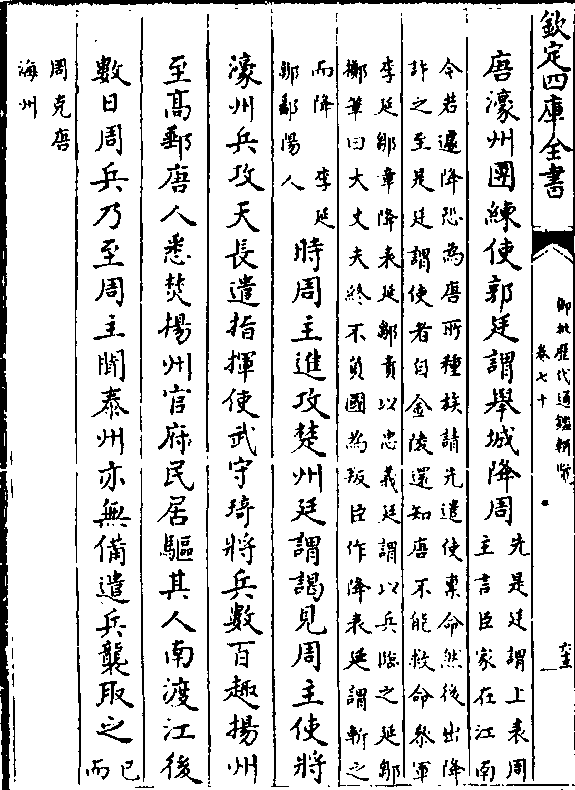 欽定四庫全書
御批歷代通鑑輯覽
卷七十
唐濠州團練使郭廷謂舉城降周
先是廷謂上表周
主言臣家在江南
今若遽降恐為唐所種族請先遣使稟命然後出降
許之至是廷謂使者自金陵還知唐不能救命參軍
李延鄒草降表延鄒責以忠義廷謂以兵臨之延鄒
擲筆曰大丈夫終不負國為叛臣作降表廷謂斬之
而降 李延
鄒鄱陽人
時周主進攻楚州廷謂謁見周主使將
濠州兵攻天長遣指揮使武守琦將兵數百趣揚州
至高郵唐人悉焚揚州官府民居驅其人南渡江後
數日周兵乃至周主聞泰州亦無備遣兵襲取之
已
而
周克唐
海州